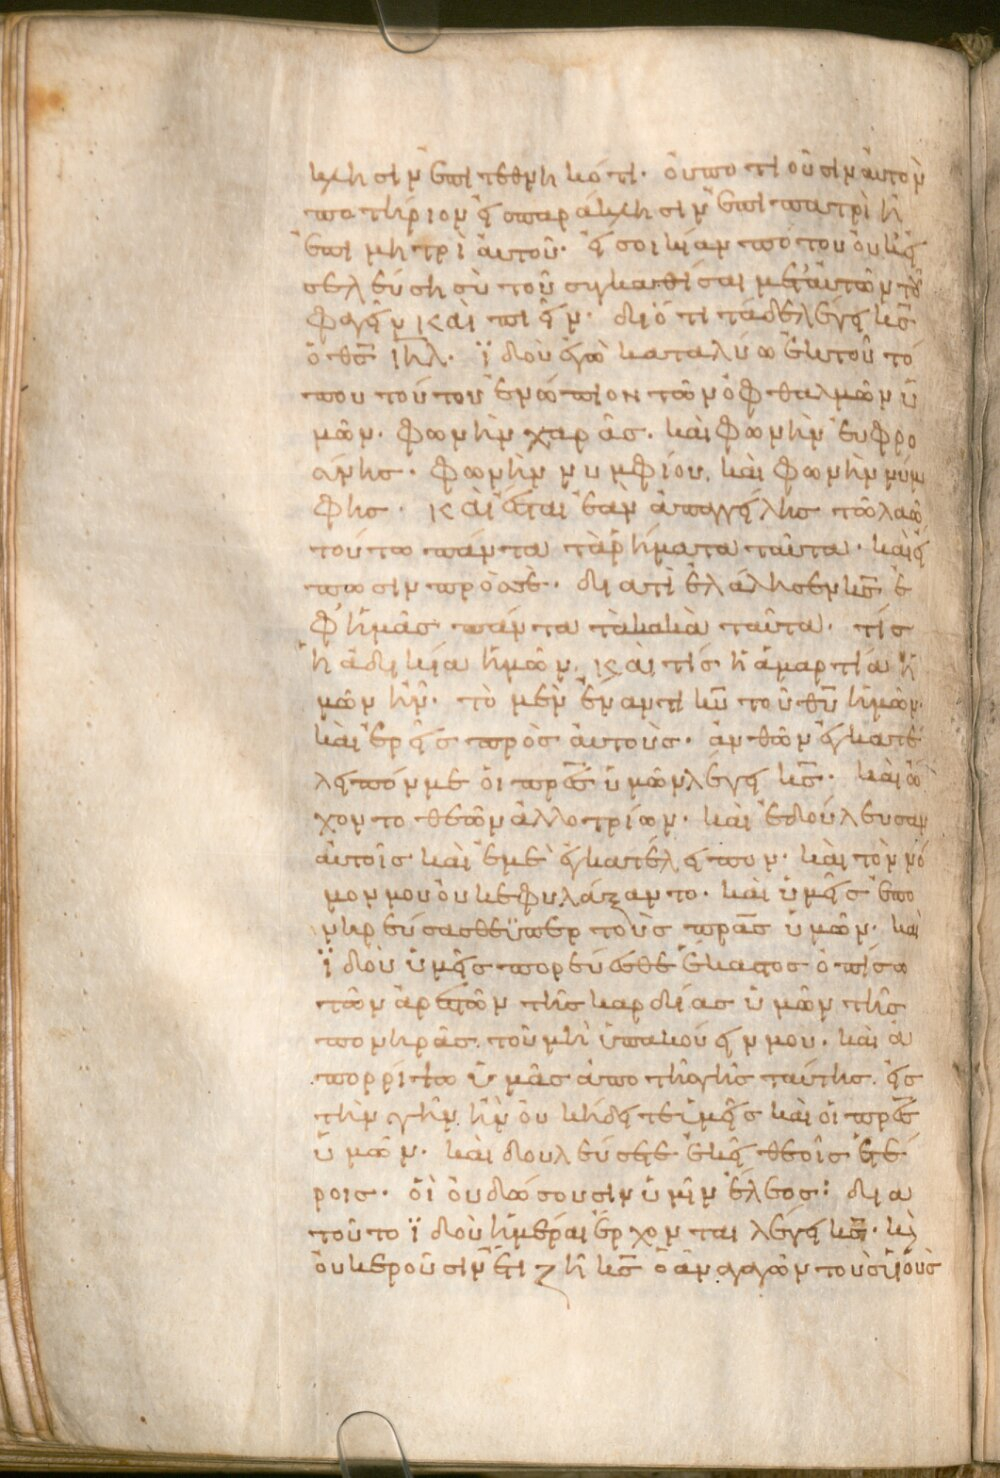 κλησιν ἐπι τεθνηκότι· οὐ ποτιοῦσιν αὐτὸν
ποτήριον εἰς παράκλησιν ἐπι πατρὶ ἢ
ἐπι μητρὶ αὐτοῦ· εἰς οἰκίαν πότου οὐκ εἰ
σελεύση σὺ τοῦ συγκαθίσαι μετ' αὐτῶν τοῦ
φαγεῖν καὶ πιεῖν· διότι τάδε λέγει κς̅
ὁ θς̅ ιη̅λ· ϊδου ἐγὼ καταλύω ἐκ τοῦ τό
που τούτου ἐνώπιον τῶν ὀφθαλμῶν ὑ
μῶν· φωνὴν χαρᾶς· καὶ φωνὴν εὐφρο
σύνης· φωνὴν νυμφίου, καὶ φωνὴν νύμ
φης· καὶ ἔσται ἐὰν ἀπαγγείλης τῶ λαῶ
τούτω πάντα τὰ ῥήματα ταῦτα· καὶ εἴ
πωσιν πρὸς σὲ· διατὶ ἐλάλησεν κς̅ ἐ
φ' ἡμᾶς πάντα τὰ κακὰ ταῦτα· τίς
ἡ ἀδικία ἡμῶν, καὶ τίς ἡ ἁμαρτία ἡ
μῶν ἣν· τὸ μὲν ἔναντι κυ̅ τοῦ θυ̅ ἡμῶν·
καὶ ἐρεῖς πρὸς αὐτοὺς· ἀνθῶν ἐγκατέ
λειπόν με οἱ πρε̅ς ὑμῶν λέγει κς̅· καὶ ὤ
χοντο θεῶν ἀλλοτρίων· καὶ ἐδούλευσαν
αὐτοῖς καὶ ἐμὲ ἐγκατέλειπον· καὶ τὸν νό
μον μου οὐκ ἐφυλάξαντο· καὶ ὑμεῖς ἐπο
νηρεύσασθε ϋπερ τοὺς πρα̅ς ὑμῶν· καὶ
ϊδοὺ ὑμεῖς πορεύεσθε ἕκαστος ὀπίσω
τῶν ἀρεστῶν τῆς καρδίας ὑμῶν τῆς
πονηρᾶς, τοῦ μὴ ὑπακούειν μου. καὶ ἀ
πορρίψω ὑμᾶς ἀπο τῆς γῆς ταύτης. εἰς
τὴν γῆν ἣν οὐκ ἤδειτε ὑμεῖς καὶ οἱ πρε̅ς
ὑμῶν· καὶ δουλεύσετε ἐκεῖ θεοῖς ἑτέ
ροις· οἳ οὐ δώσουσιν ὑμῖν ἔλεος: δια
τοῦτο ϊδοὺ ἡμέραι ἔρχονται λέγει κς̅· κ
οὐκ ἐροῦσιν ἔτι ζῆ κς̅ ὁ ἀναγαγὼν τοὺς υἱοὺς